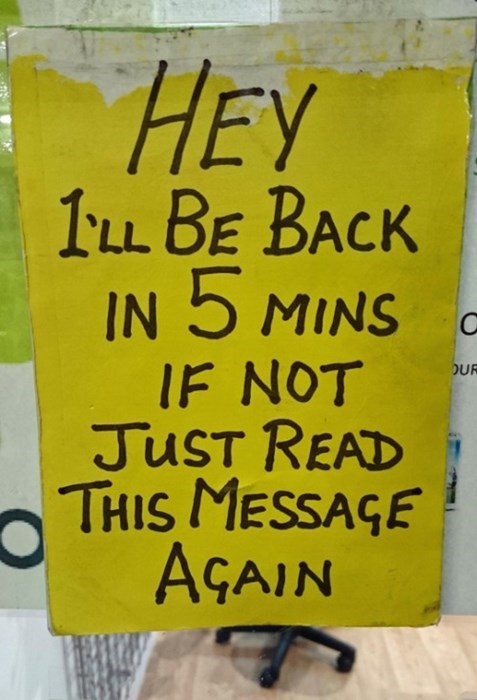 HEY
I'LL BE BACK
IN 5 MINS
IF NOT
JUST READ
THIS MESSAGE
AGAIN